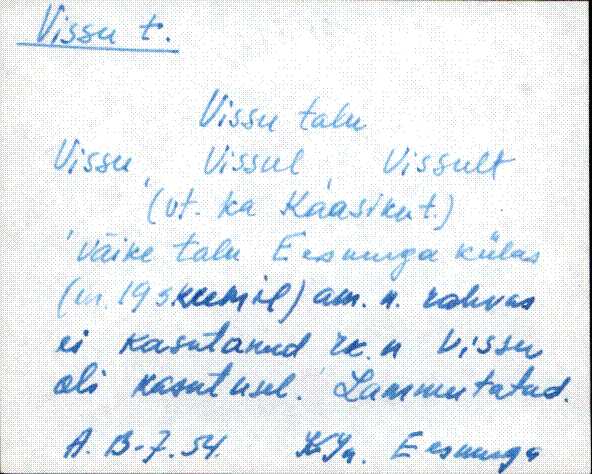 Vissu t.
Vissu talu
Vissu, Vissul, Vissult
(vt. ka Kaasiku t.)
väike talu Eesnurga külas
(nr. 19 skeemil) am. n. rahvas
ei kasutanud rk. n Vissu
oli kasutusel. Lammutatud.
A. B-7.54. Eesnurga